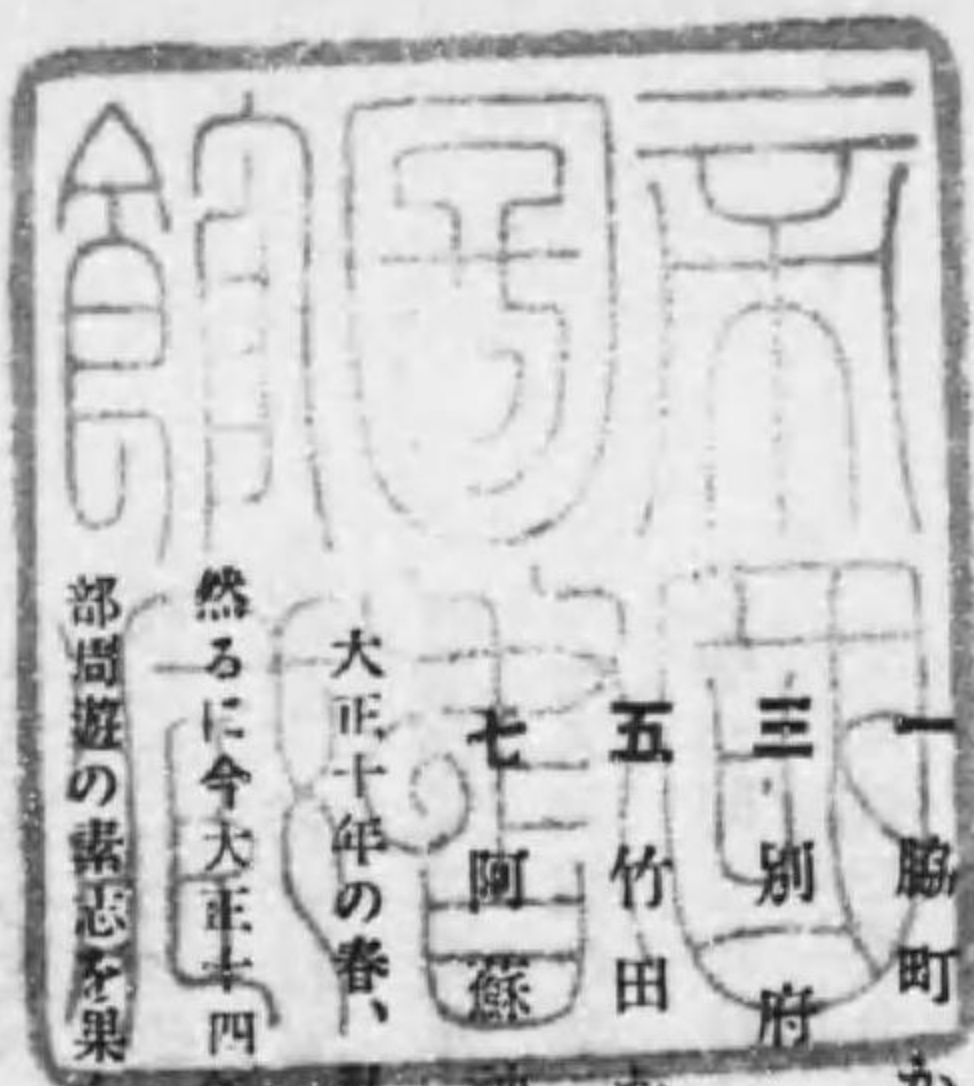 帝國圖書館藏
一 脇町か
三 別府
五 竹田
七 阿蘇
大正十年の春、
然るに今大正十四
部周遊の素志を果